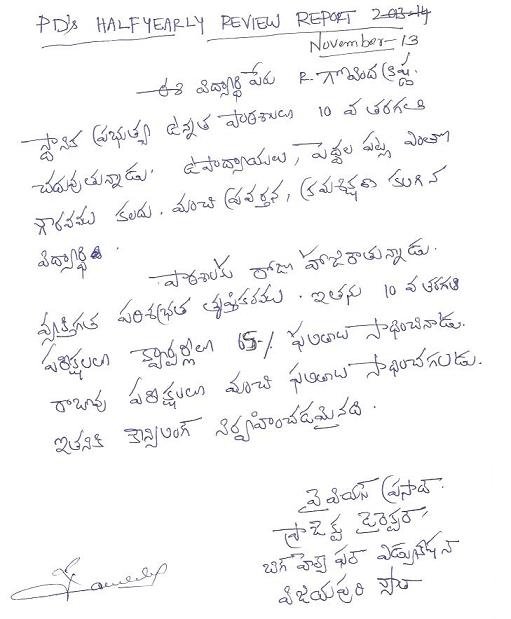 PD's HALFYEARLY REVIEW REPORT 2013-14
November-13
ఈ విద్యార్థి పేరు R. గోవింద క్రిష్ణ.
స్థానిక ప్రభుత్వ ఉన్నత పాఠశాలలు 10 వ తరగతి
చదువుతున్నాడు. ఉపాధ్యాయులు, పెద్దల పట్ల ఎంతో
గౌరవము కలదు. మంచి ప్రవర్తన, క్రమశిక్షణ కలిగిన
విద్యార్థి.
పాఠశాలకు రోజు హాజరౌతున్నాడు.
వ్యక్తిగత పరిశుభ్రత తృప్తికరము. ఇతను 10 వ తరగతి
పరీక్షలలు క్వార్టర్లీలు 65% ఫలితాలు సాధించినాడు.
రాబోవు పరీక్షలలు మంచి ఫలితాలు సాధించగలడు.
ఇతనికి కౌన్సిలింగ్ నిర్వహించడమైనది.
వై వియస్ ప్రసాద్.
ప్రాజెక్ట్ డైరెక్టర్,
బిగ్ హెల్ప్ ఫర్ ఎడ్యుకేషన్
విజయపురి సౌత్